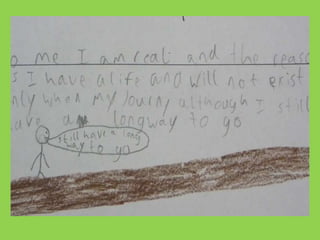 o me I am real and the reaso
s I have a life and will not exist
nly when my Journy although I still
ave a long way to go
still have a long
way to go